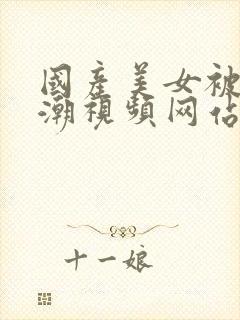 國產美女被
潮視頻网佔
十一娘